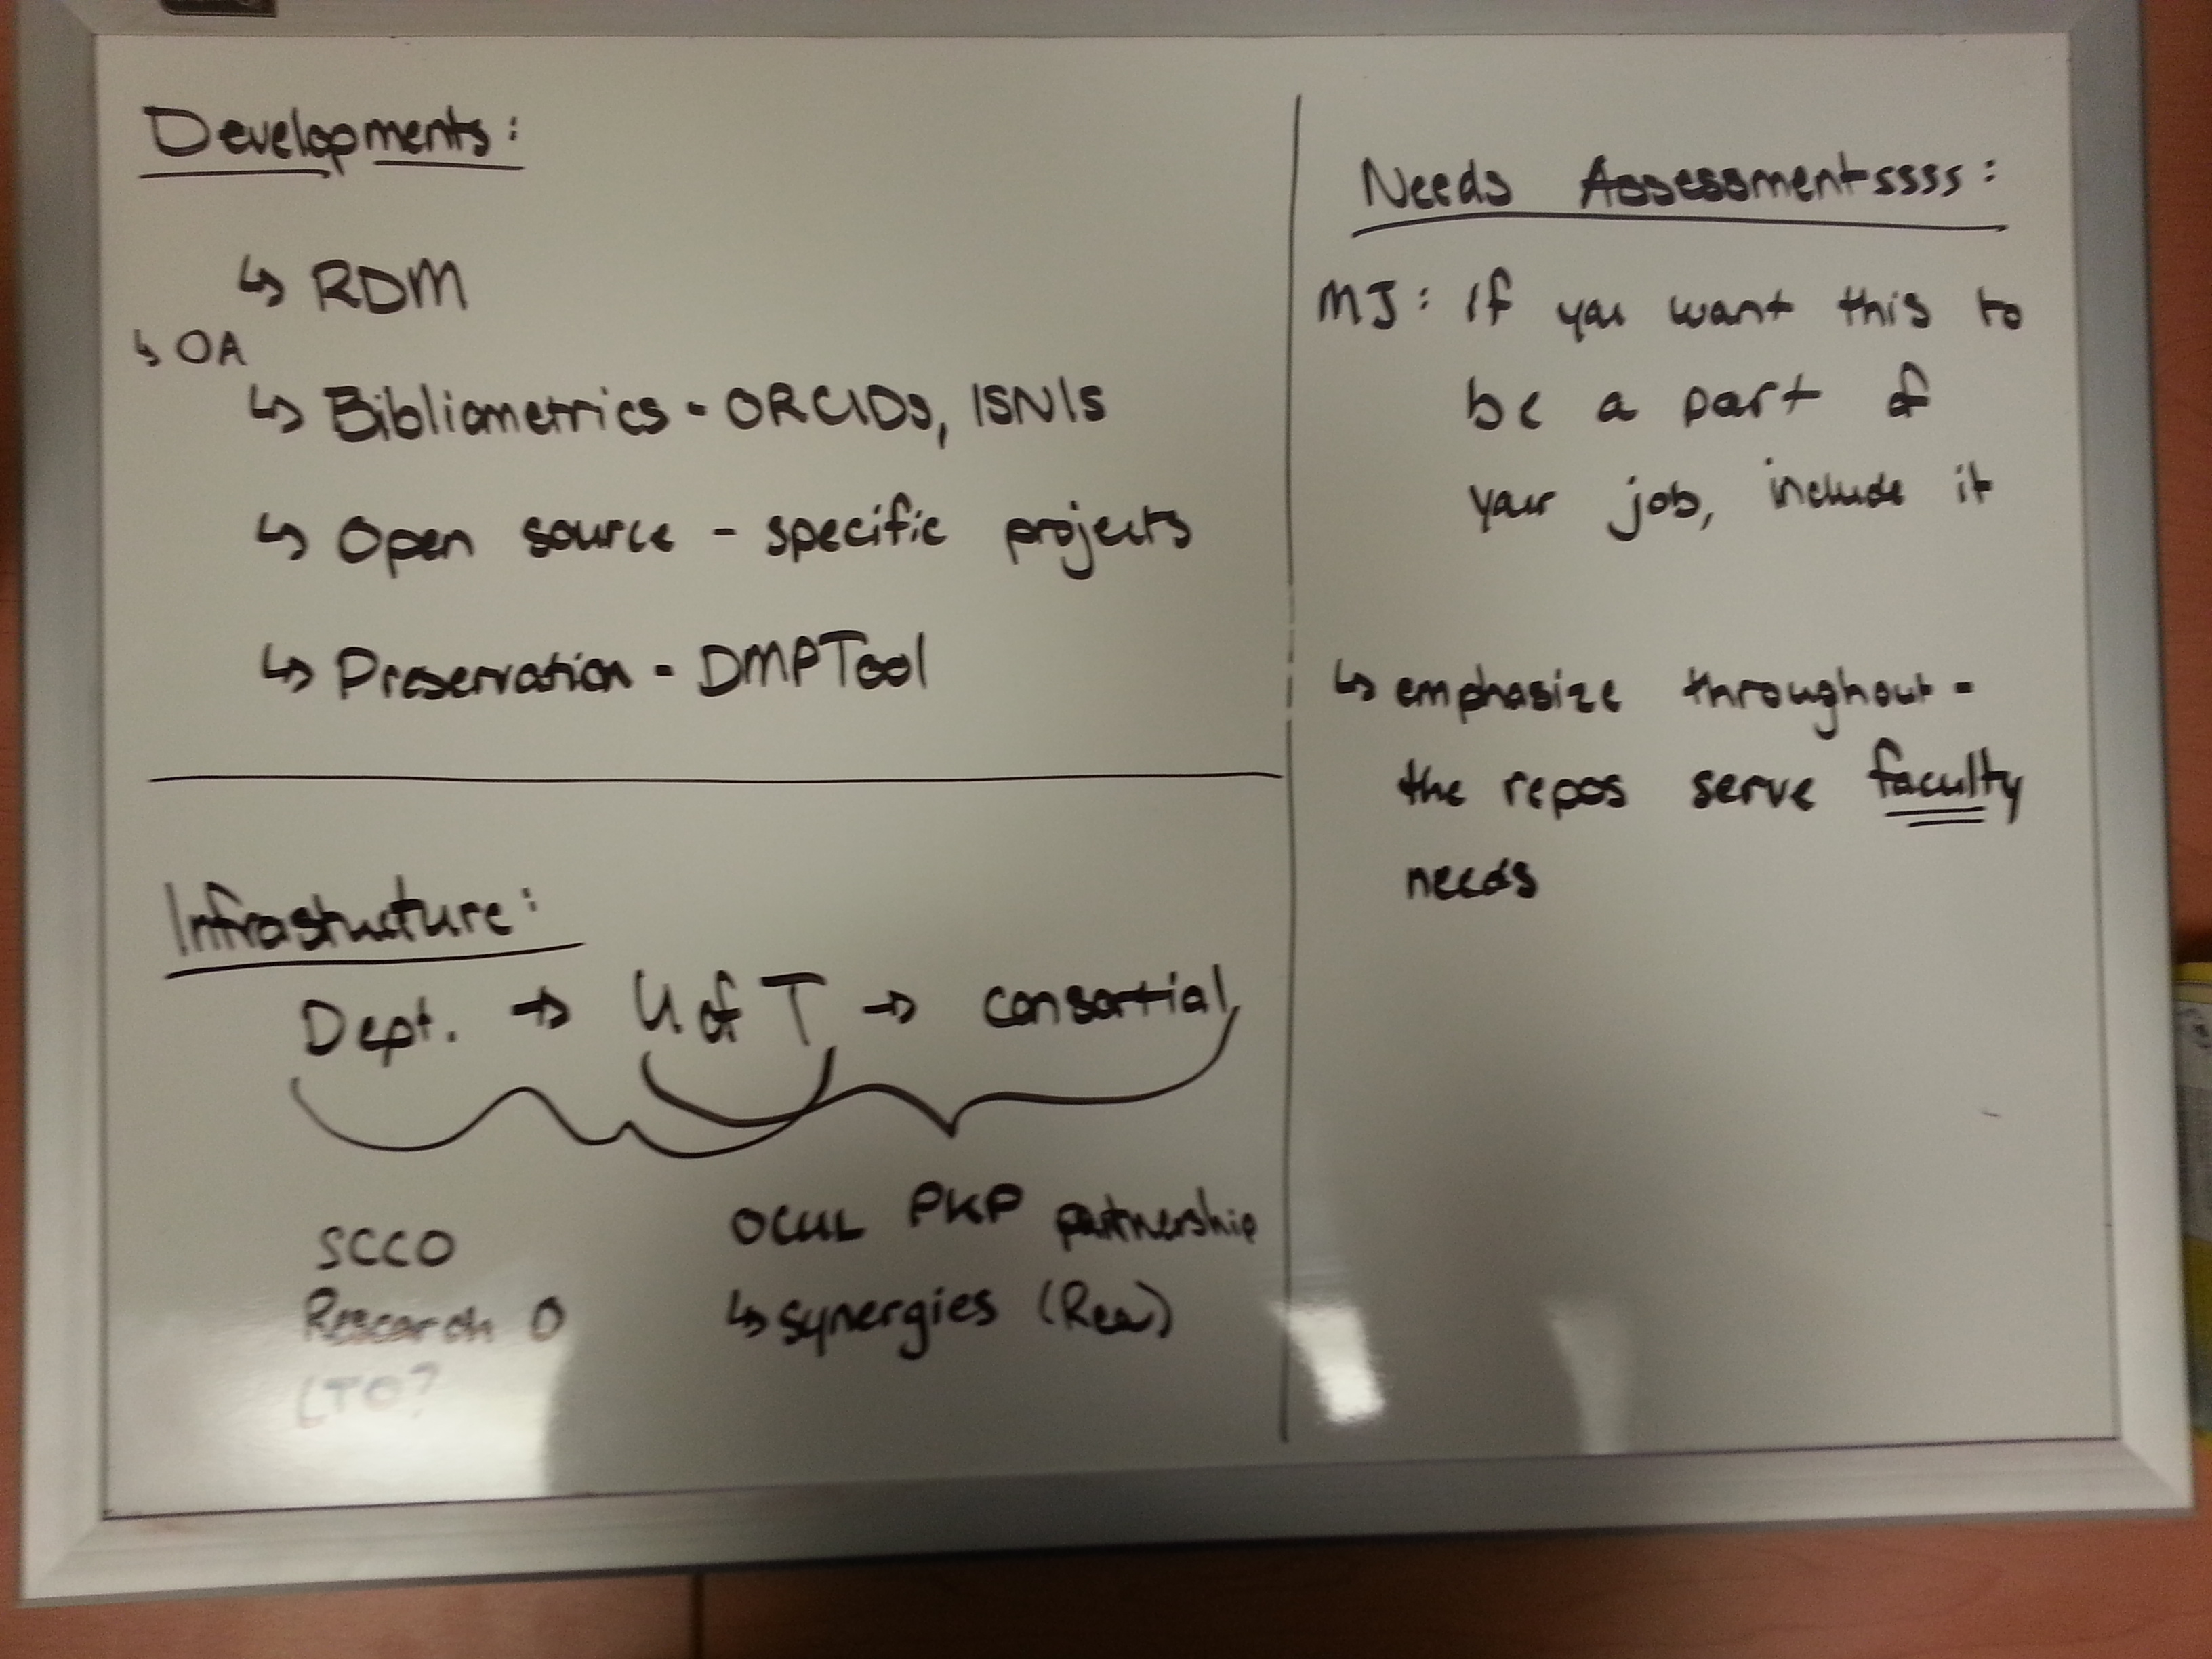 Developments:
↳ RDM
↳ OA
↳ Bibliometrics - ORCIDs, ISNIs
↳ Open source - specific projects
↳ Preservation - DMPTool
Infrastucture:
Dept. → U of T → consortial
SCCO
Research O
LTO?
OCUL PKP partnership
↳ synergies (Rea)
Needs Assessmentssss:
MJ: if you want this to
be a part of
your job, include it
↳ emphasize throughout -
the repos serve faculty
needs